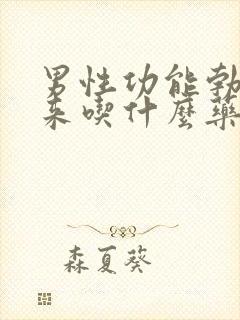 男性功能勃
来喫什麼藥
森夏葵